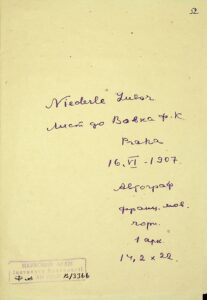 Niederle Lubor
Лист до Вовка Ф.К
Прага
16.VI-1907.
Автограф
франц. мов.
чорн.
1 арк.
14,2 x 22.